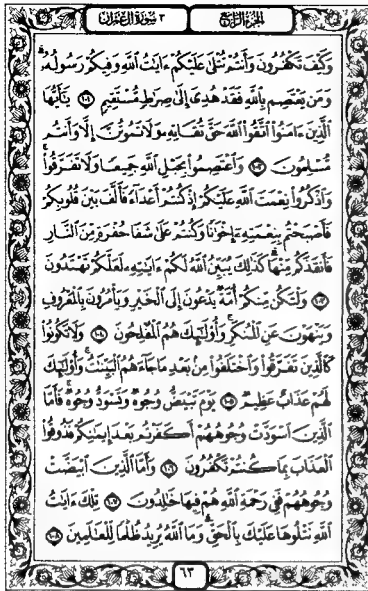 الجزء الرابع ٣ سورة آل عمران
وَكَيْفَ تَكْفُرُونَ وَأَنتُمْ تُتْلَىٰ عَلَيْكُمْ ءَايَٰتُ ٱللَّهِ وَفِيكُمْ رَسُولُهُۥۗ
وَمَن يَعْتَصِم بِٱللَّهِ فَقَدْ هُدِىَ إِلَىٰ صِرَٰطٍ مُّسْتَقِيمٍ ١٠١ يَٰٓأَيُّهَا
ٱلَّذِينَ ءَامَنُوا۟ ٱتَّقُوا۟ ٱللَّهَ حَقَّ تُقَاتِهِۦ وَلَا تَمُوتُنَّ إِلَّا وَأَنتُم
مُّسْلِمُونَ ١٠٢ وَٱعْتَصِمُوا۟ بِحَبْلِ ٱللَّهِ جَمِيعًا وَلَا تَفَرَّقُوا۟ۚ
وَٱذْكُرُوا۟ نِعْمَتَ ٱللَّهِ عَلَيْكُمْ إِذْ كُنتُمْ أَعْدَآءً فَأَلَّفَ بَيْنَ قُلُوبِكُمْ
فَأَصْبَحْتُم بِنِعْمَتِهِۦٓ إِخْوَٰنًا وَكُنتُمْ عَلَىٰ شَفَا حُفْرَةٍ مِّنَ ٱلنَّارِ
فَأَنقَذَكُم مِّنْهَاۗ كَذَٰلِكَ يُبَيِّنُ ٱللَّهُ لَكُمْ ءَايَٰتِهِۦ لَعَلَّكُمْ تَهْتَدُونَ
١٠٣ وَلْتَكُن مِّنكُمْ أُمَّةٌ يَدْعُونَ إِلَى ٱلْخَيْرِ وَيَأْمُرُونَ بِٱلْمَعْرُوفِ
وَيَنْهَوْنَ عَنِ ٱلْمُنكَرِۚ وَأُو۟لَٰٓئِكَ هُمُ ٱلْمُفْلِحُونَ ١٠٤ وَلَا تَكُونُوا۟
كَٱلَّذِينَ تَفَرَّقُوا۟ وَٱخْتَلَفُوا۟ مِنۢ بَعْدِ مَا جَآءَهُمُ ٱلْبَيِّنَٰتُۚ وَأُو۟لَٰٓئِكَ
لَهُمْ عَذَابٌ عَظِيمٌ ١٠٥ يَوْمَ تَبْيَضُّ وُجُوهٌ وَتَسْوَدُّ وُجُوهٌۚ فَأَمَّا
ٱلَّذِينَ ٱسْوَدَّتْ وُجُوهُهُمْ أَكَفَرْتُم بَعْدَ إِيمَٰنِكُمْ فَذُوقُوا۟
ٱلْعَذَابَ بِمَا كُنتُمْ تَكْفُرُونَ ١٠٦ وَأَمَّا ٱلَّذِينَ ٱبْيَضَّتْ
وُجُوهُهُمْ فَفِى رَحْمَةِ ٱللَّهِ هُمْ فِيهَا خَٰلِدُونَ ١٠٧ تِلْكَ ءَايَٰتُ
ٱللَّهِ نَتْلُوهَا عَلَيْكَ بِٱلْحَقِّۗ وَمَا ٱللَّهُ يُرِيدُ ظُلْمًا لِّلْعَٰلَمِينَ ١٠٨
٦٣